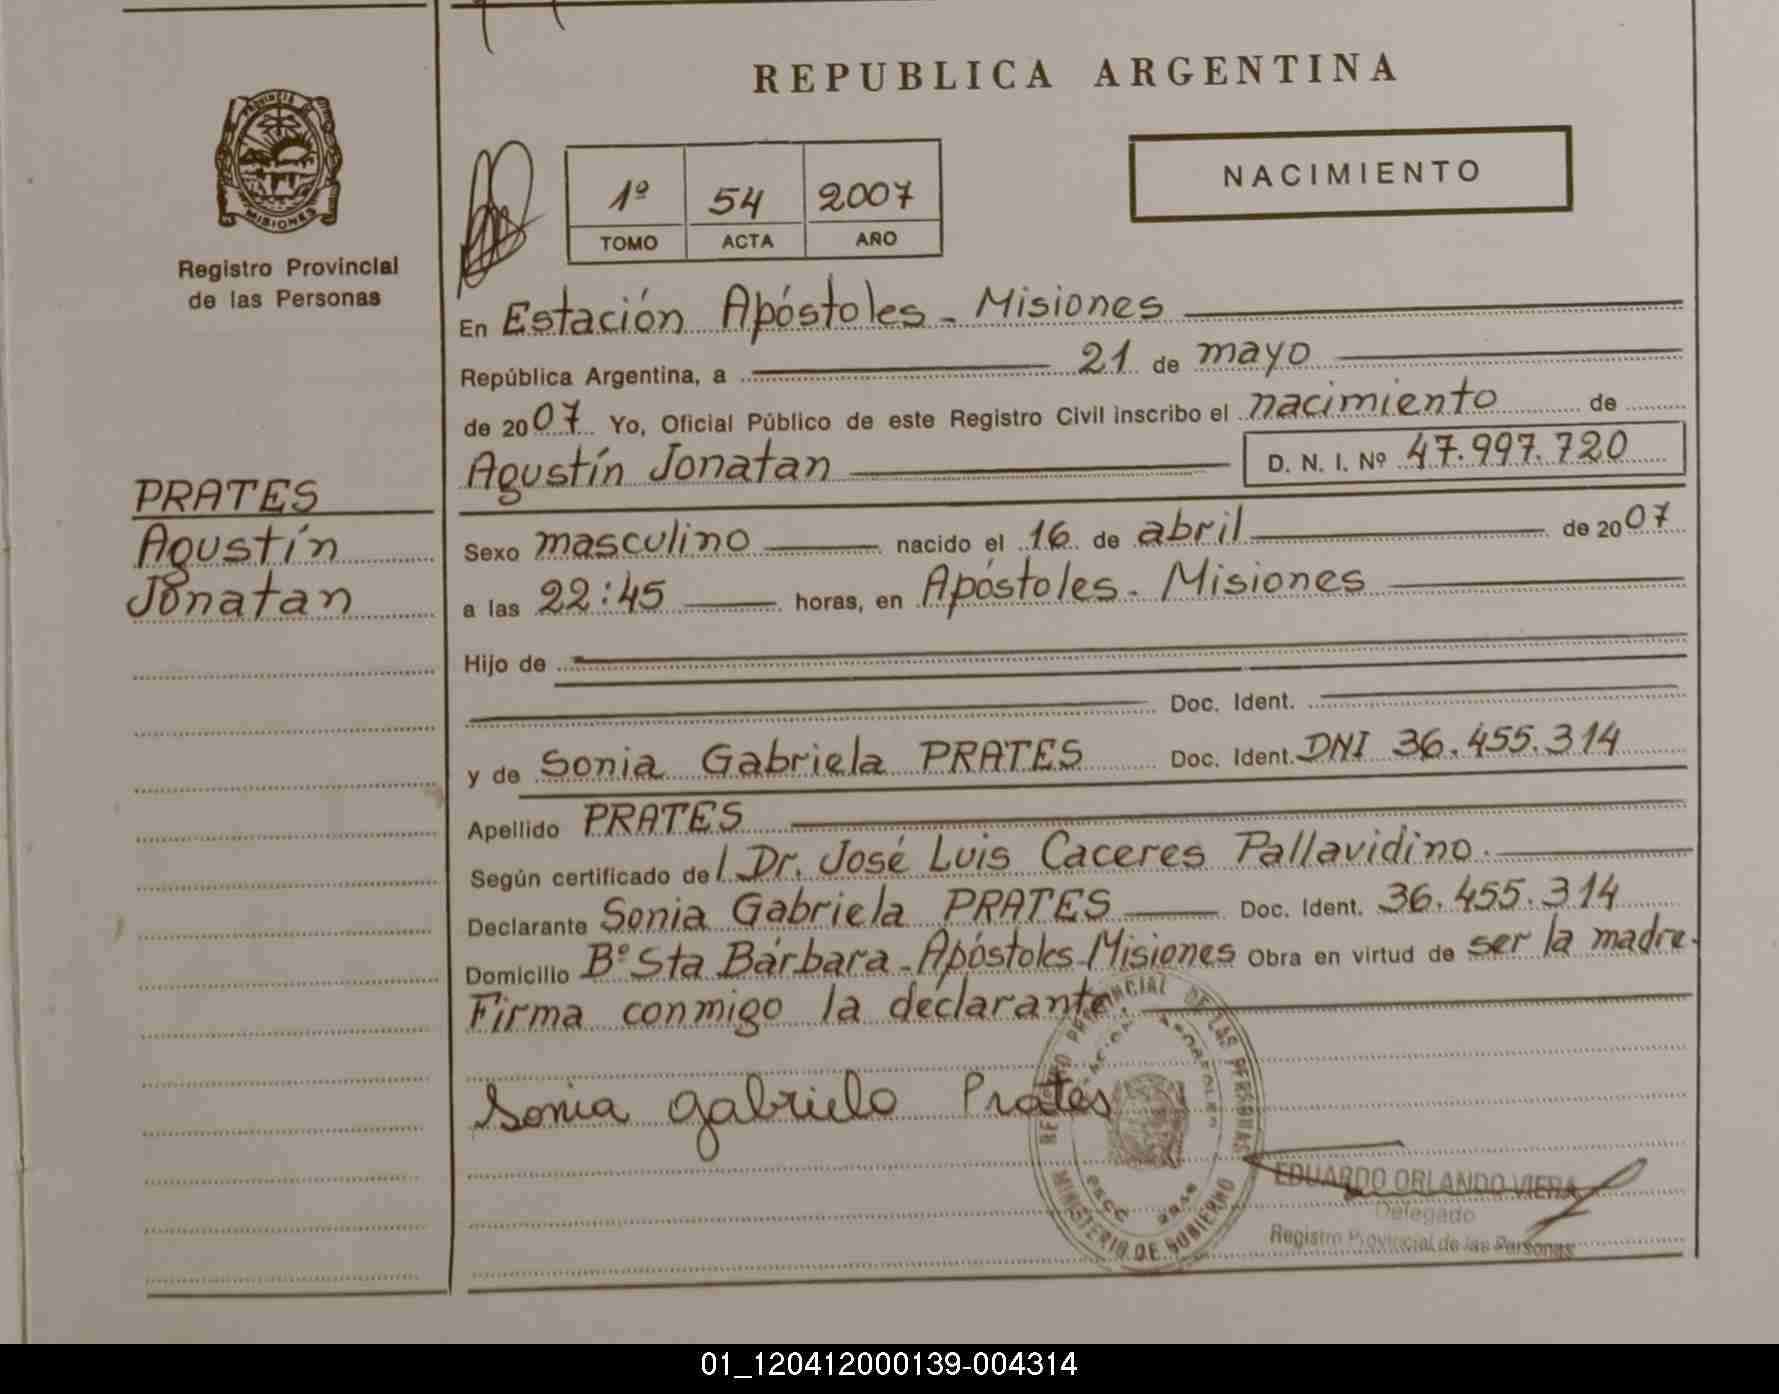 REPUBLICA ARGENTINA
PROVINCIA DE
MISIONES
Registro Provincial
de las Personas
1º 54 2007
TOMO ACTA AÑO
NACIMIENTO
En Estación Apóstoles - Misiones
República Argentina, a 21 de mayo
de 2007 Yo, Oficial Público de este Registro Civil inscribo el nacimiento de
Agustín Jonatan D. N. I. Nº 47.997.720
PRATES
Agustín
Jonatan
Sexo masculino nacido el 16 de abril de 2007
a las 22:45 horas, en Apóstoles - Misiones
Hijo de
Doc. Ident.
y de Sonia Gabriela PRATES Doc. Ident. DNI 36.455.314
Apellido PRATES
Según certificado del Dr. José Luis Caceres Pallavidino.
Declarante Sonia Gabriela PRATES Doc. Ident. 36.455.314
Domicilio Bº Sta Bárbara - Apóstoles - Misiones Obra en virtud de ser la madre.
Firma conmigo la declarante.
Sonia gabriela Prates
REGISTRO PROVINCIAL DE LAS PERSONAS
MINISTERIO DE GOBIERNO
EDUARDO ORLANDO VIERA
Delegado
Registro Provincial de las Personas
01_120412000139-004314